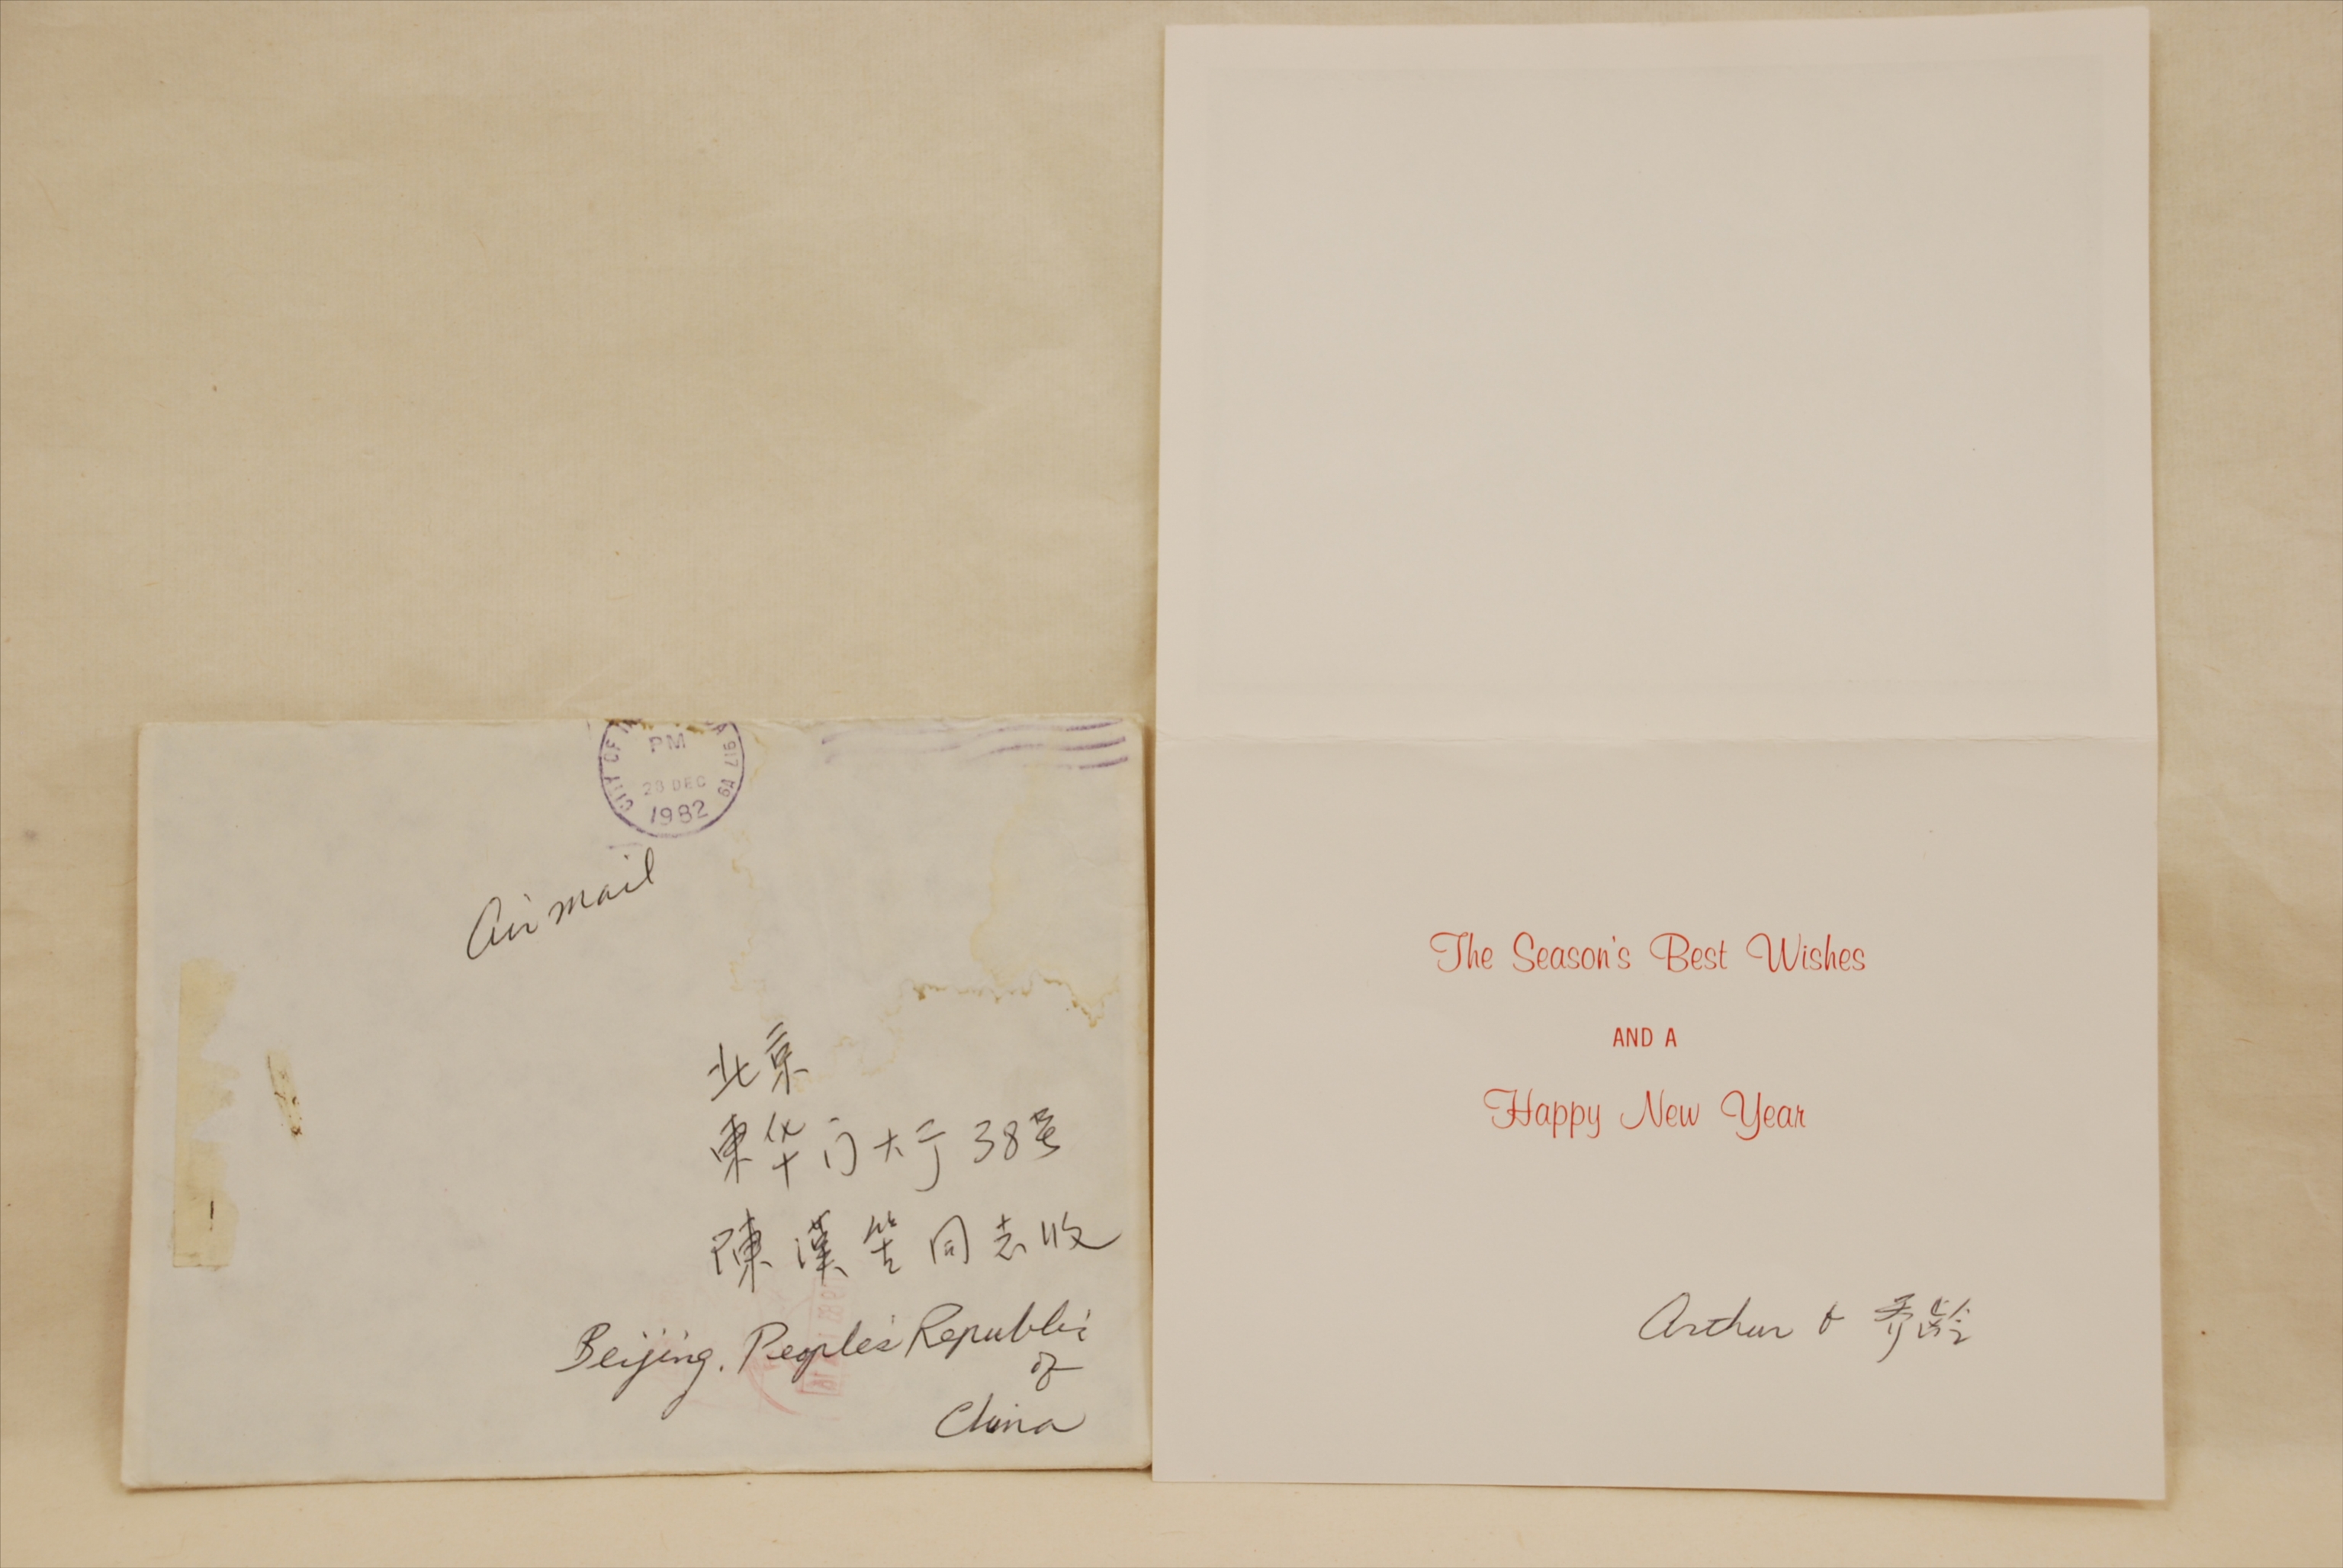 CITY OF IN
PM
28 DEC
1982
917 V9
Air mail
北京
東华门大于 38号
陳漢笙同志收
Beijing, People's Republic
of
China
The Season's Best Wishes
AND A
Happy New Year
Arthur & 乔龄